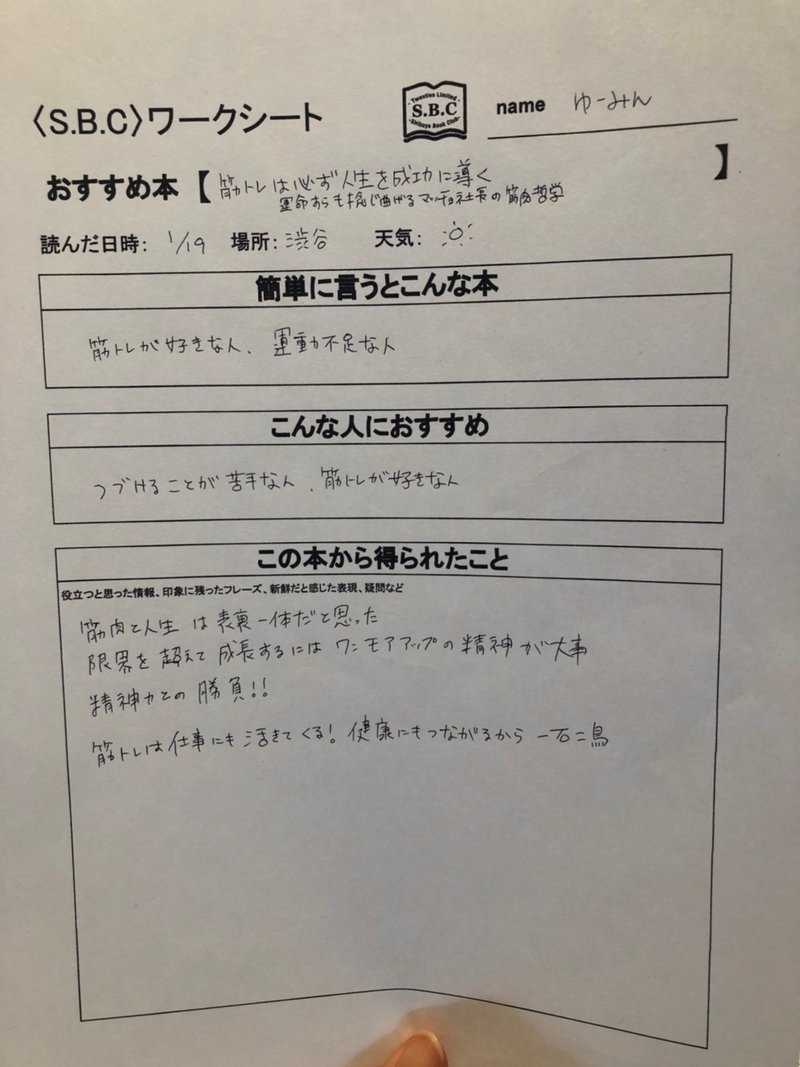 〈S.B.C〉ワークシート
Twenties Limited
S.B.C
Shibuya Book Club
name ゆーみん
おすすめ本【筋トレは必ず人生を成功に導く
運命すらも捻じ曲げるマッチョ社長の筋肉哲学】
読んだ日時: 1/19 場所: 渋谷 天気:
簡単に言うとこんな本
筋トレが好きな人、運動不足な人
こんな人におすすめ
つづけることが苦手な人、筋トレが好きな人
この本から得られたこと
役立つと思った情報、印象に残ったフレーズ、新鮮だと感じた表現、疑問など
筋肉と人生は表裏一体だと思った
限界を超えて成長するにはワンモアアップの精神が大事
精神力との勝負!!
筋トレは仕事にも活きてくる!健康にもつながるから一石二鳥